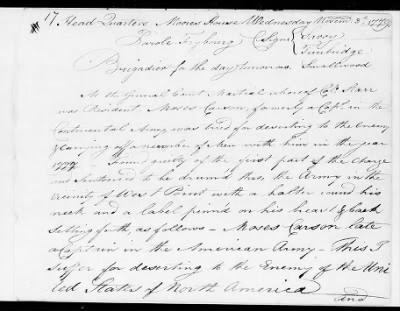 17 Head Quarters Moores House Wednesday Novem. 3d. 1779
Parole Fryburg C Signs { Groov
Tunbridge
Brigadier for the day tomorrow Smallwood
At the General Court Martial whereof Colo. Starr
was President Moses Carson, formerly a Capt. in the
Continental Army was tried for deserting to the Enemy
& Carrying off a number of Men with him in the year
1777 - found guilty of the first part of the Charge
and Sentenced to be drum'd thro, the Army in the
vicinity of West Point with a halter round his
neck and a label pinn'd on his breast & back
setting forth as follows - Moses Carson late
a Captain in the American Army - This I
suffer for deserting to the Enemy of the Uni
ted States of North America
and